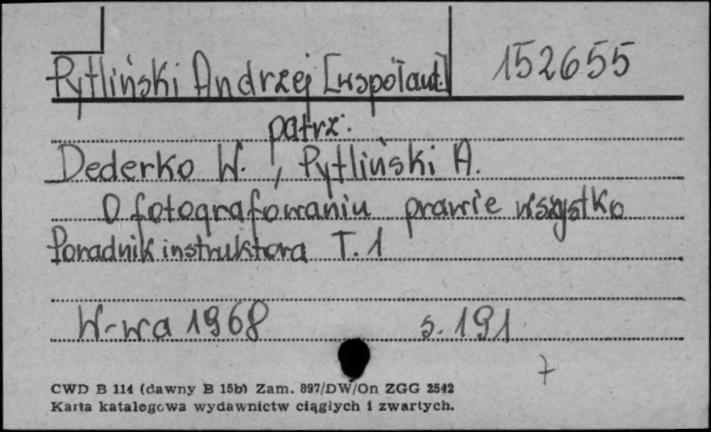 Pytliński Andrzej [współaut.] 152655
patrz:
Dederko W., Pytliński A.
O fotografowaniu prawie wszystko
Poradnik instruktora T. 1
W-wa 1968 s. 191
7
CWD B 114 (dawny B 15b) Zam. 897/DW/On ZGG 2542
Karta katalogowa wydawnictw ciągłych i zwartych.